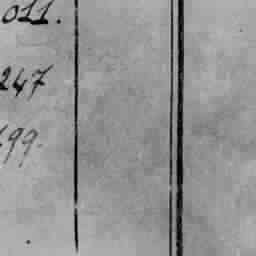 011.
247
499.